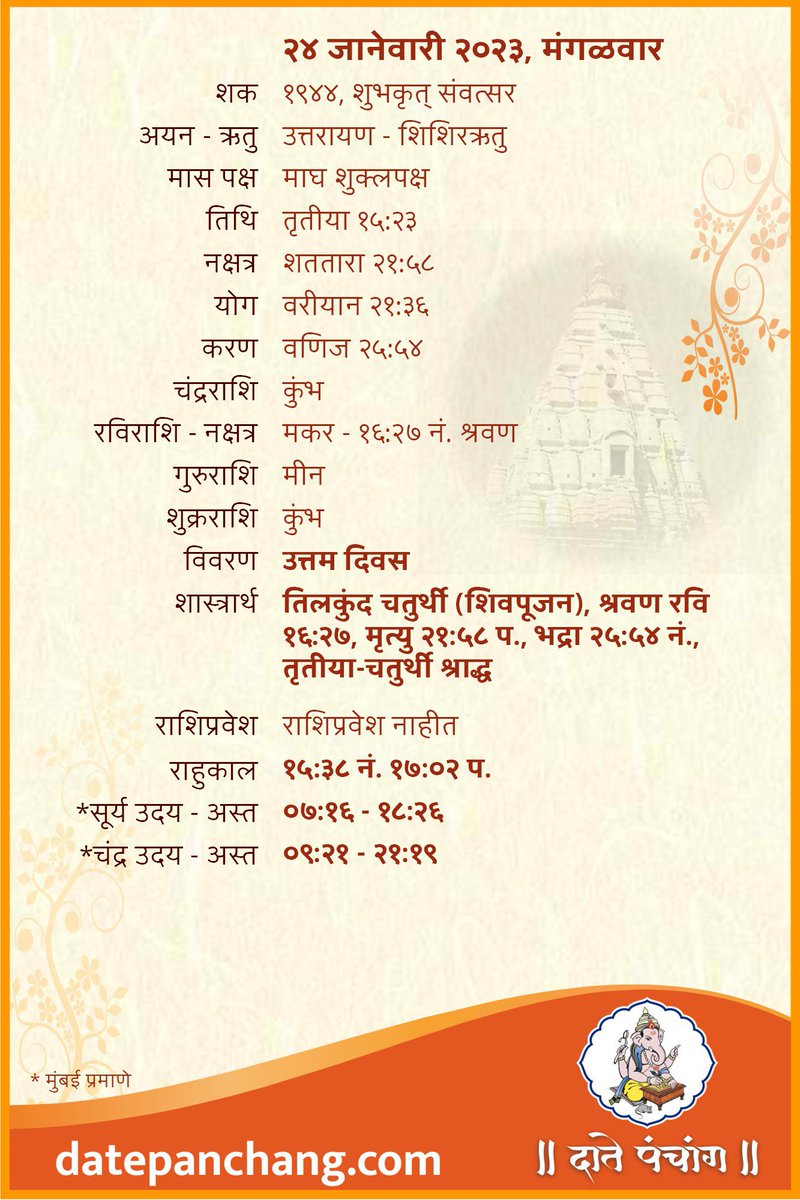 २४ जानेवारी २०२३, मंगळवार
शक १९४४, शुभकृत् संवत्सर
अयन - ऋतु उत्तरायण - शिशिरऋतु
मास पक्ष माघ शुक्लपक्ष
तिथि तृतीया १५:२३
नक्षत्र शततारा २१:५८
योग वरीयान २१:३६
करण वणिज २५:५४
चंद्रराशि कुंभ
रविराशि - नक्षत्र मकर - १६:२७ नं. श्रवण
गुरुराशि मीन
शुक्रराशि कुंभ
विवरण उत्तम दिवस
शास्त्रार्थ तिलकुंद चतुर्थी (शिवपूजन), श्रवण रवि
१६:२७, मृत्यु २१:५८ प., भद्रा २५:५४ नं.,
तृतीया-चतुर्थी श्राद्ध
राशिप्रवेश राशिप्रवेश नाहीत
राहुकाल १५:३८ नं. १७:०२ प.
*सूर्य उदय - अस्त ०७:१६ - १८:२६
*चंद्र उदय - अस्त ०९:२१ - २१:१९
* मुंबई प्रमाणे
datepanchang.com
॥ दाते पंचांग ॥